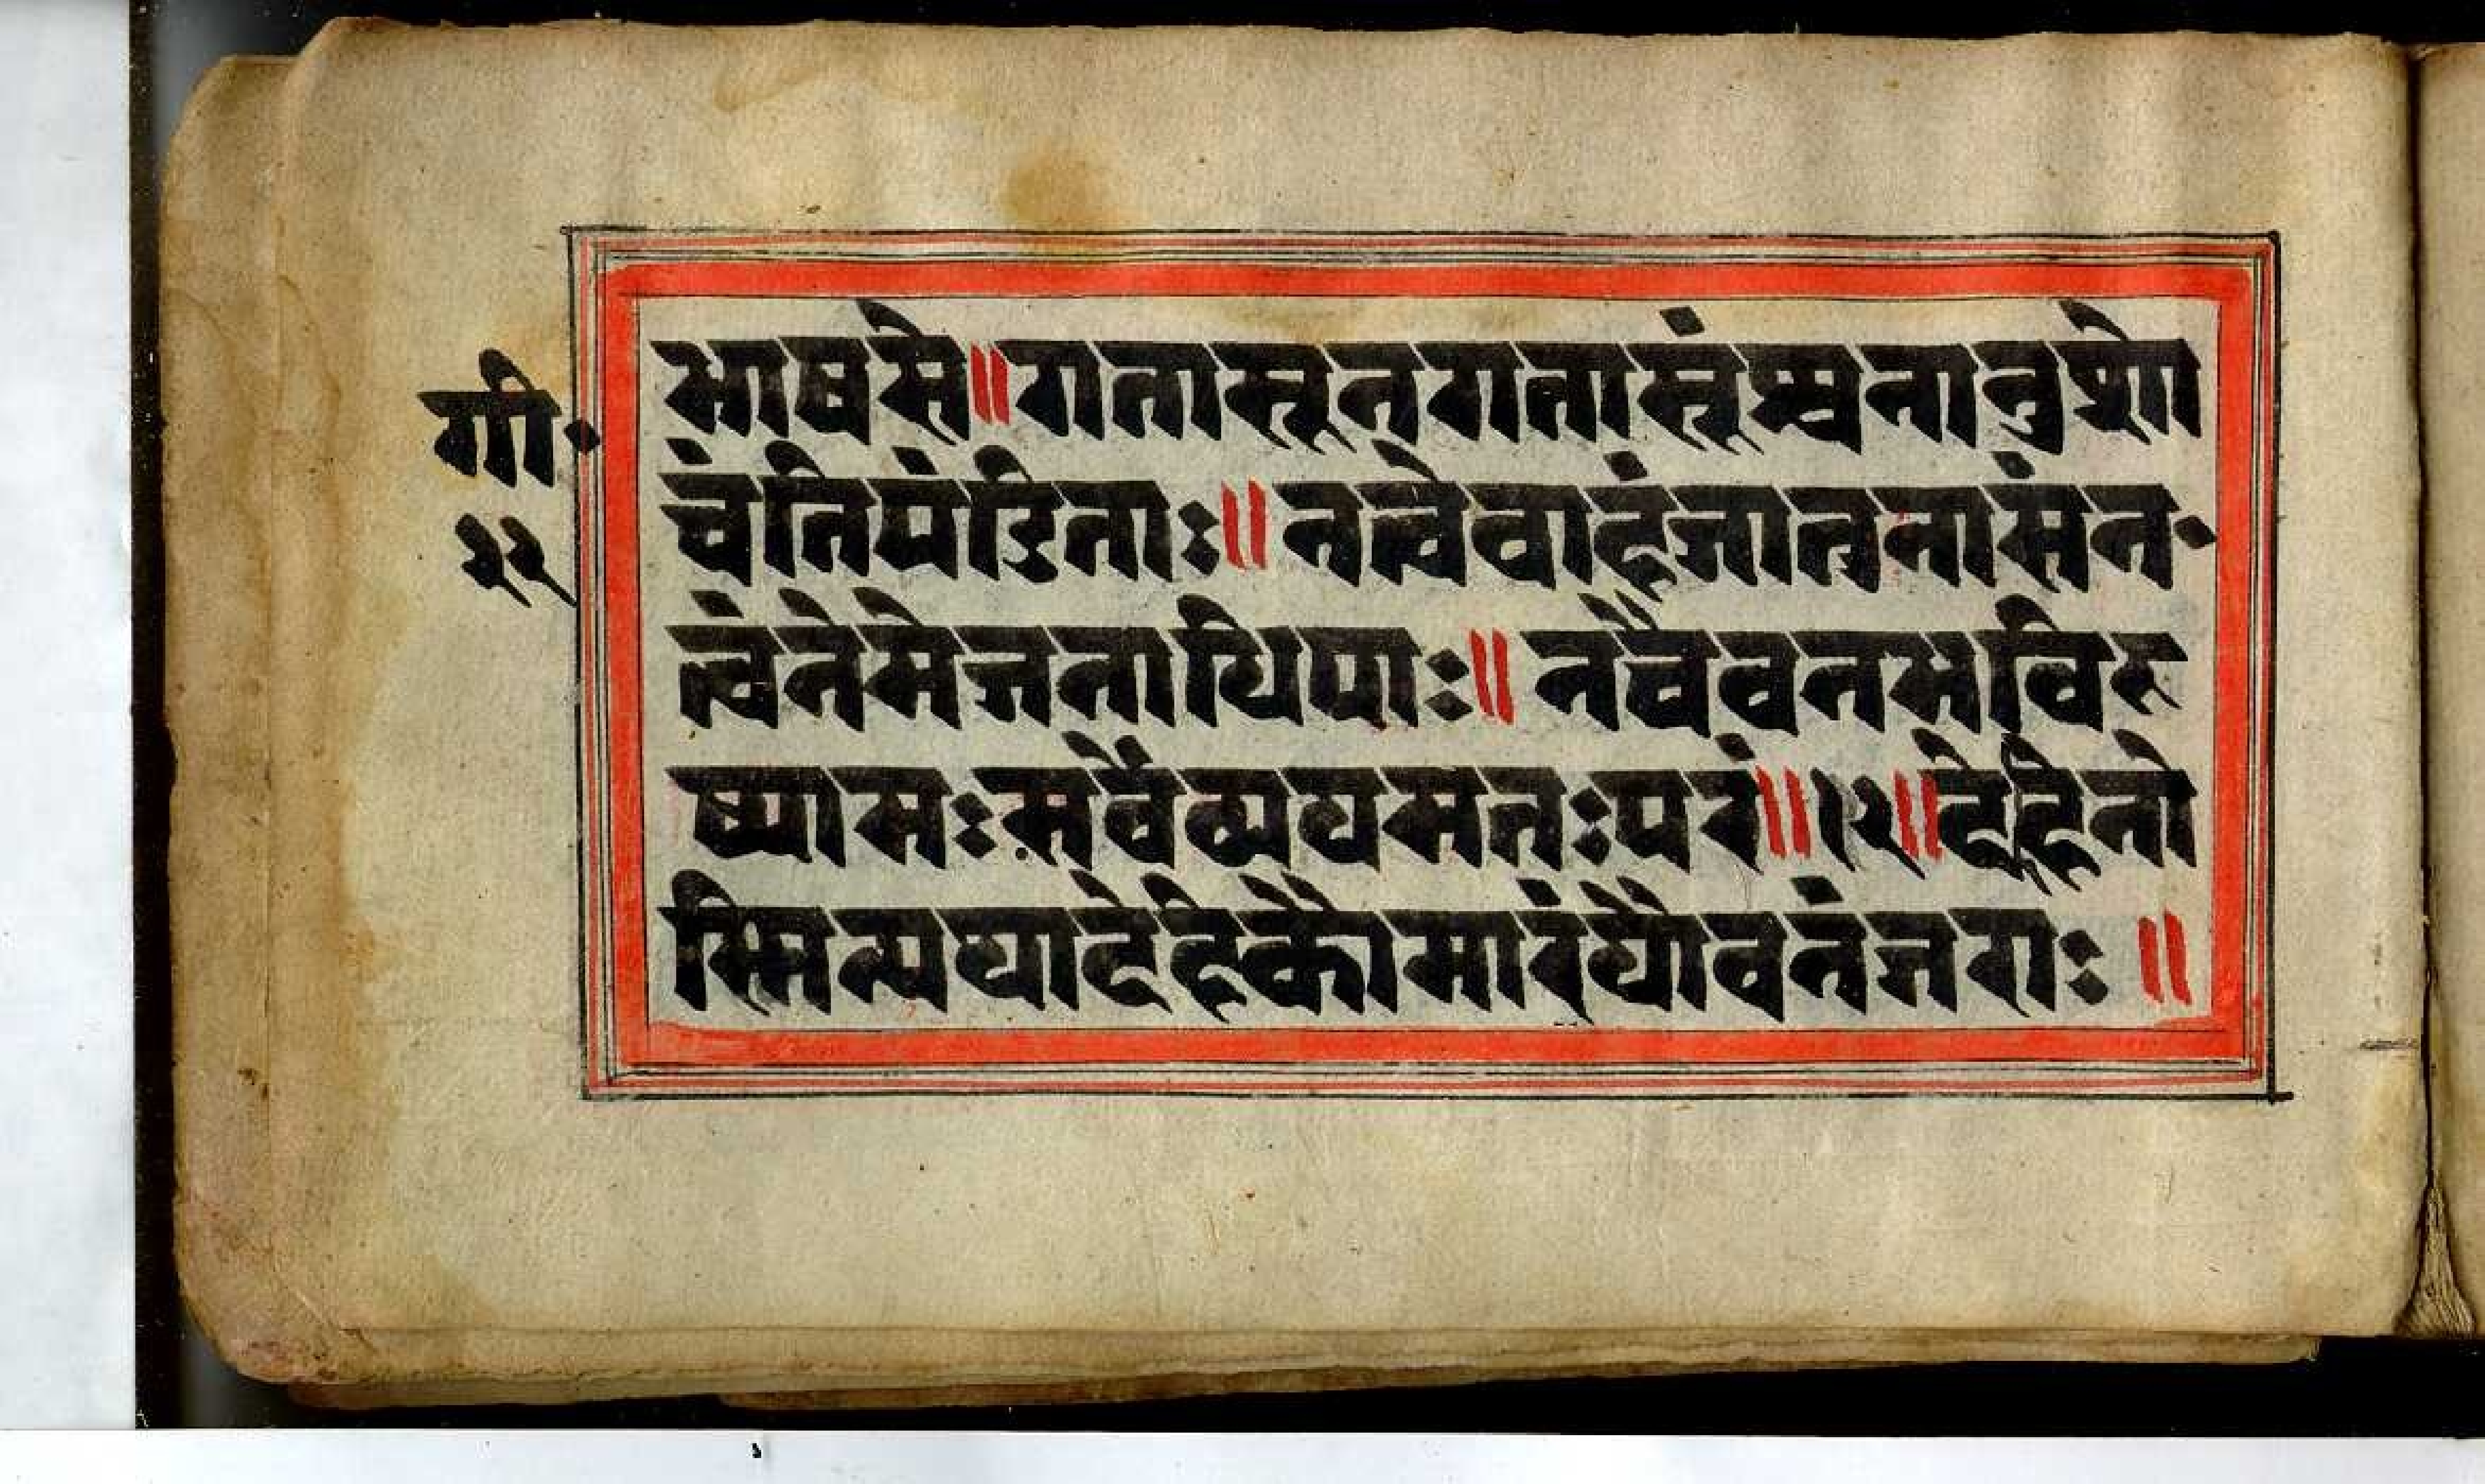 गी॰
३२
भाषसे॥गतासूनगतासूंश्चनानुशो
चंतिपंडिताः॥नत्वेवाहंजातुनासंन॰
त्वंनेमेजनाधिपाः॥नचैवनभविरु
ष्यामःसर्वेवयमतःपरं॥१२॥देहिनो
स्मिन्यथादेहेकौमारंयौवनंजराः॥